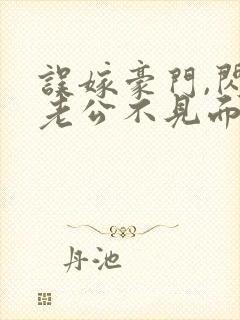 誤嫁豪門,閃
老公不見而
丹池